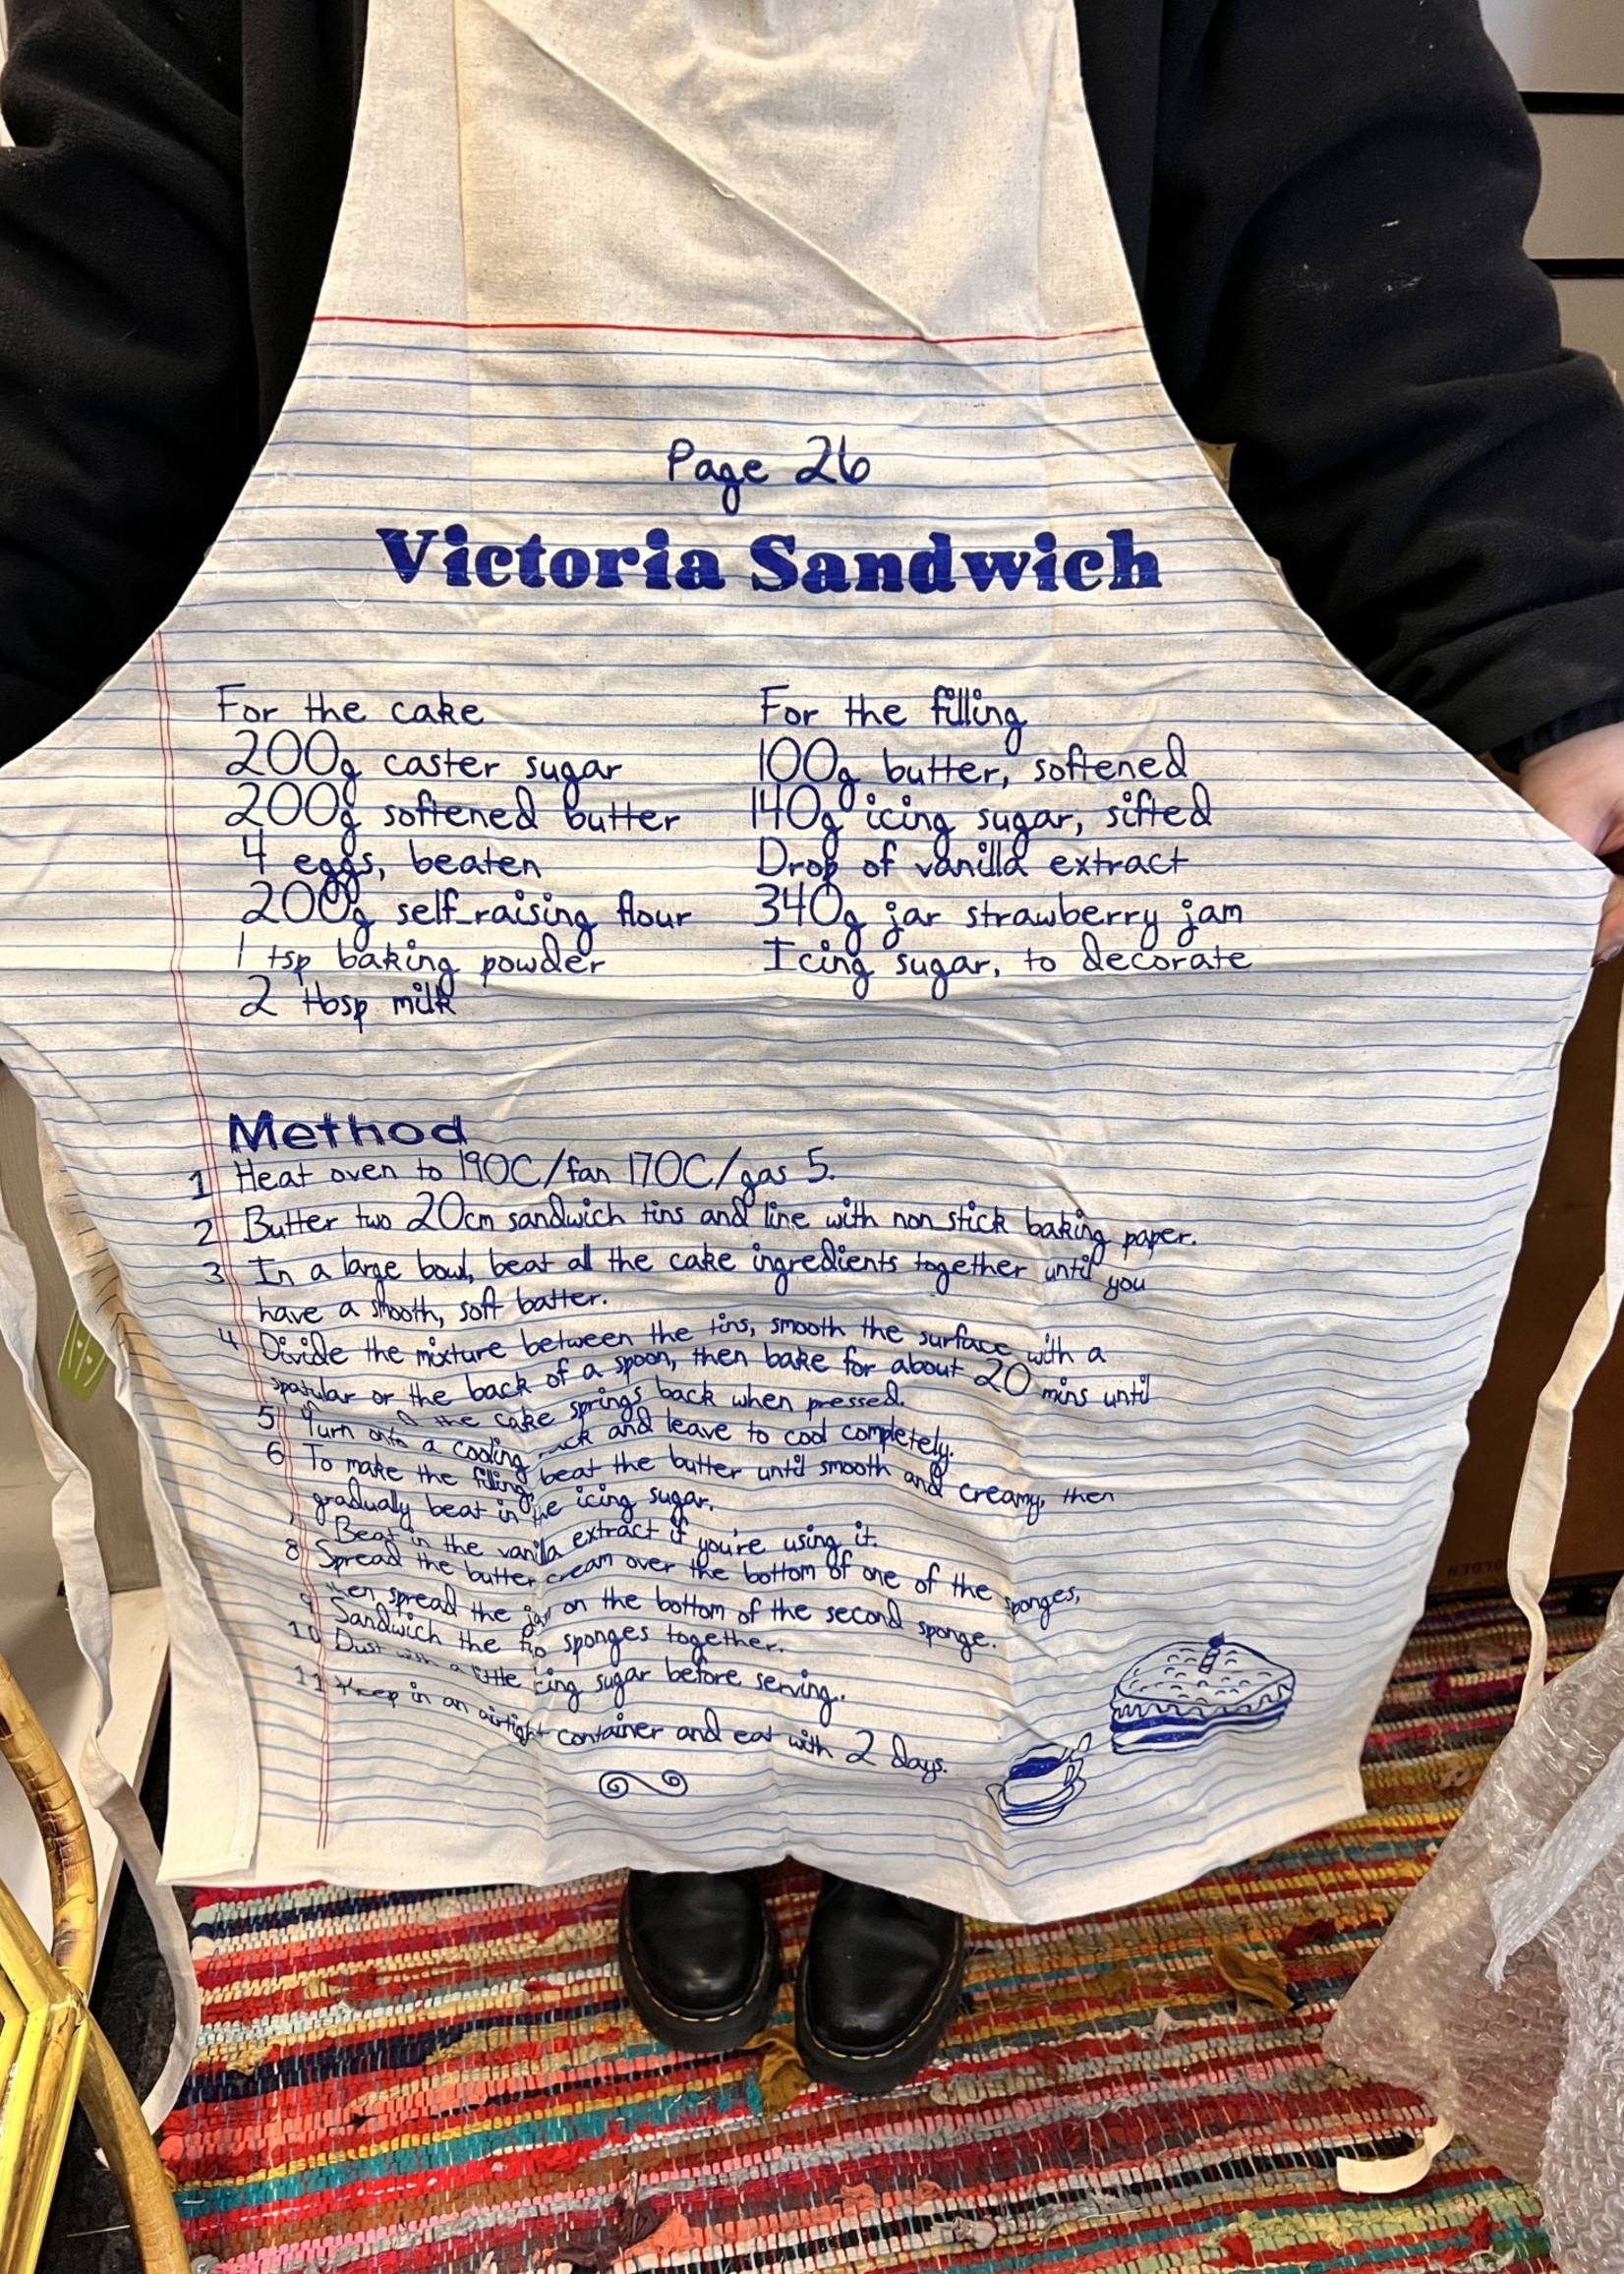 Page 26
Victoria Sandwich
For the cake
200g caster sugar
200g softened butter
4 eggs, beaten
200g self-raising flour
1 tsp baking powder
2 tbsp milk
For the filling
100g butter, softened
140g icing sugar, sifted
Drop of vanilla extract
340g jar strawberry jam
Icing sugar, to decorate
Method
1 Heat oven to 190C/fan 170C/gas 5.
2 Butter two 20cm sandwich tins and line with non stick baking paper.
3 In a large bowl, beat all the cake ingredients together until you
have a smooth, soft batter.
4 Divide the mixture between the tins, smooth the surface with a
spatular or the back of a spoon, then bake for about 20 mins until
the cake springs back when pressed.
5 Turn onto a cooling rack and leave to cool completely.
6 To make the filling, beat the butter until smooth and creamy, then
gradually beat in the icing sugar.
Beat in the vanilla extract if you're using it.
8 Spread the butter cream over the bottom of one of the sponges,
then spread the jam on the bottom of the second sponge.
9 Sandwich the two sponges together.
10 Dust with a little icing sugar before serving.
11 Keep in an airtight container and eat with 2 days.